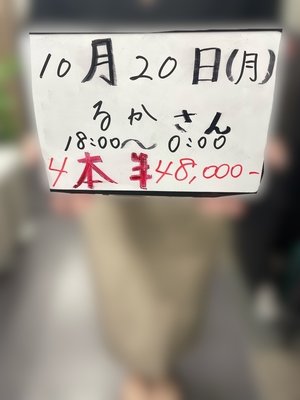 10月20日(月)
るかさん
18:00〜0:00
4本半48,000-